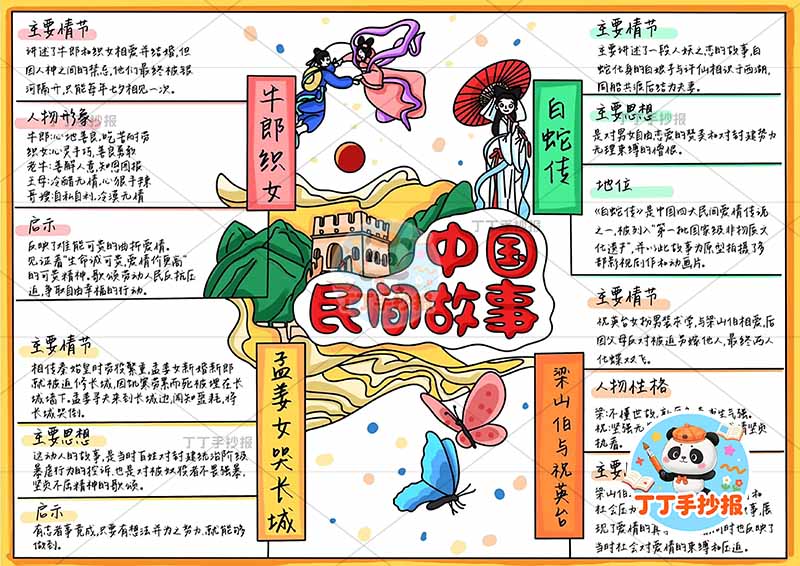 中国
民间故事
牛郎织女
主要情节
讲述了牛郎和织女相爱并结婚,但
因人神之间的禁忌,他们最终被银
河隔开,只能每年七夕相见一次。
人物形象
牛郎:心地善良,吃苦耐劳
织女:心灵手巧,善良勇敢
老牛:善解人意,知恩图报
王母:冷酷无情,心狠手辣
哥嫂:自私自利,冷漠无情
启示
反映了难能可贵的曲折爱情。
见证着“生命诚可贵,爱情价更高”
的可贵精神。歌颂劳动人民反抗压
迫,争取自由幸福的行动。
孟姜女哭长城
主要情节
相传秦始皇时劳役繁重,孟姜女新婚新郎
就被迫修长城,因饥寒劳累而死被埋在长
城墙下。孟姜寻夫来到长城边,闻知噩耗,将
长城哭倒。
主要思想
这动人的故事,是当时百姓对封建统治阶级
暴虐行为的控诉,也是对被奴役者不畏强暴,
坚贞不屈精神的歌颂。
启示
有志者事竟成,只要有想法并为之努力,就能够
做到。
白蛇传
主要情节
主要讲述了一段人妖之恋的故事,白
蛇化身的白娘子与许仙相识于西湖,
同船共渡后结为夫妻。
主要思想
是对男女自由恋爱的赞美和对封建势力
无理束缚的憎恨。
地位
《白蛇传》是中国四大民间爱情传说
之一,被列入“第一批国家级非物质文
化遗产”,并以此故事为原型拍摄了多
部影视剧作和动画片。
梁山伯与祝英台
主要情节
祝英台女扮男装求学,与梁山伯相爱,后
因父母反对被迫节嫁他人,最终两人
化蝶双飞。
人物性格
梁:不懂世故,
书生气强。
祝:坚强
情坚贞
执着。
主要
梁山伯
和
社会压力
故事,展
现了爱情的真
同时也反映了
当时社会对爱情的束缚和压迫。
丁丁手抄报
丁丁手抄报
丁丁手抄报
丁丁手抄报
丁丁手抄报